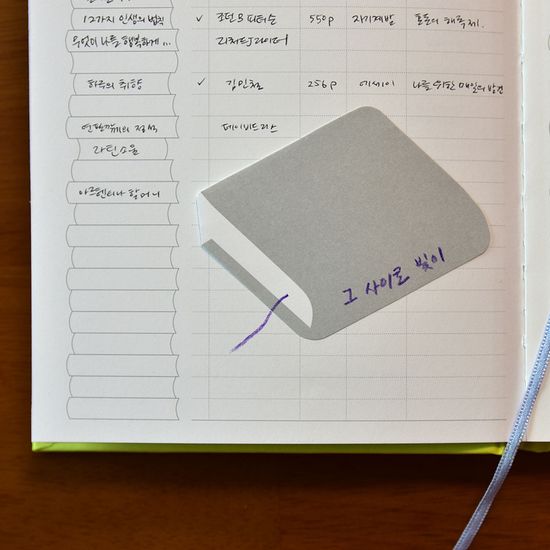 12가지 인생의 법칙 ✓ 조던 B 피터슨 550p 자기계발 혼돈의 해독제.
무엇이 나를 행복하게 ... 리처드 J 라이더
하루의 취향 ✓ 김민철 256p 에세이 나를 위한 매일의 발견
연필깎기의 정석 데이비드 리스
라틴 소울
아르헨티나 할머니
그 사이로 빛이